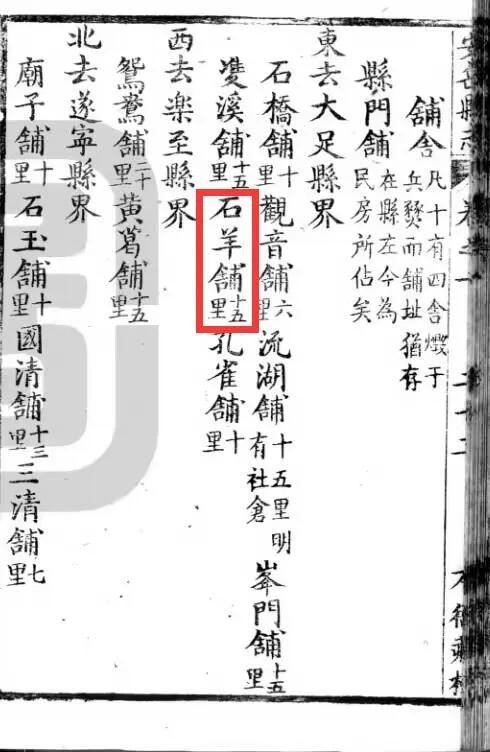 安岳縣志
舖舍凡十有四舍燬于兵燹而舖址猶存
縣門舖在縣左今為民房所佔矣
東去大足縣界
石橋舖十里觀音舖六里流湖舖十五里明有社倉峯門舖十五里
雙溪舖十五里石羊舖十五里孔雀舖十里
西去楽至縣界
鴛鴦舖二十里黃葛舖十五里
北去遂寧縣界
廟子舖十里石玉舖十里國清舖十三里三清舖七里